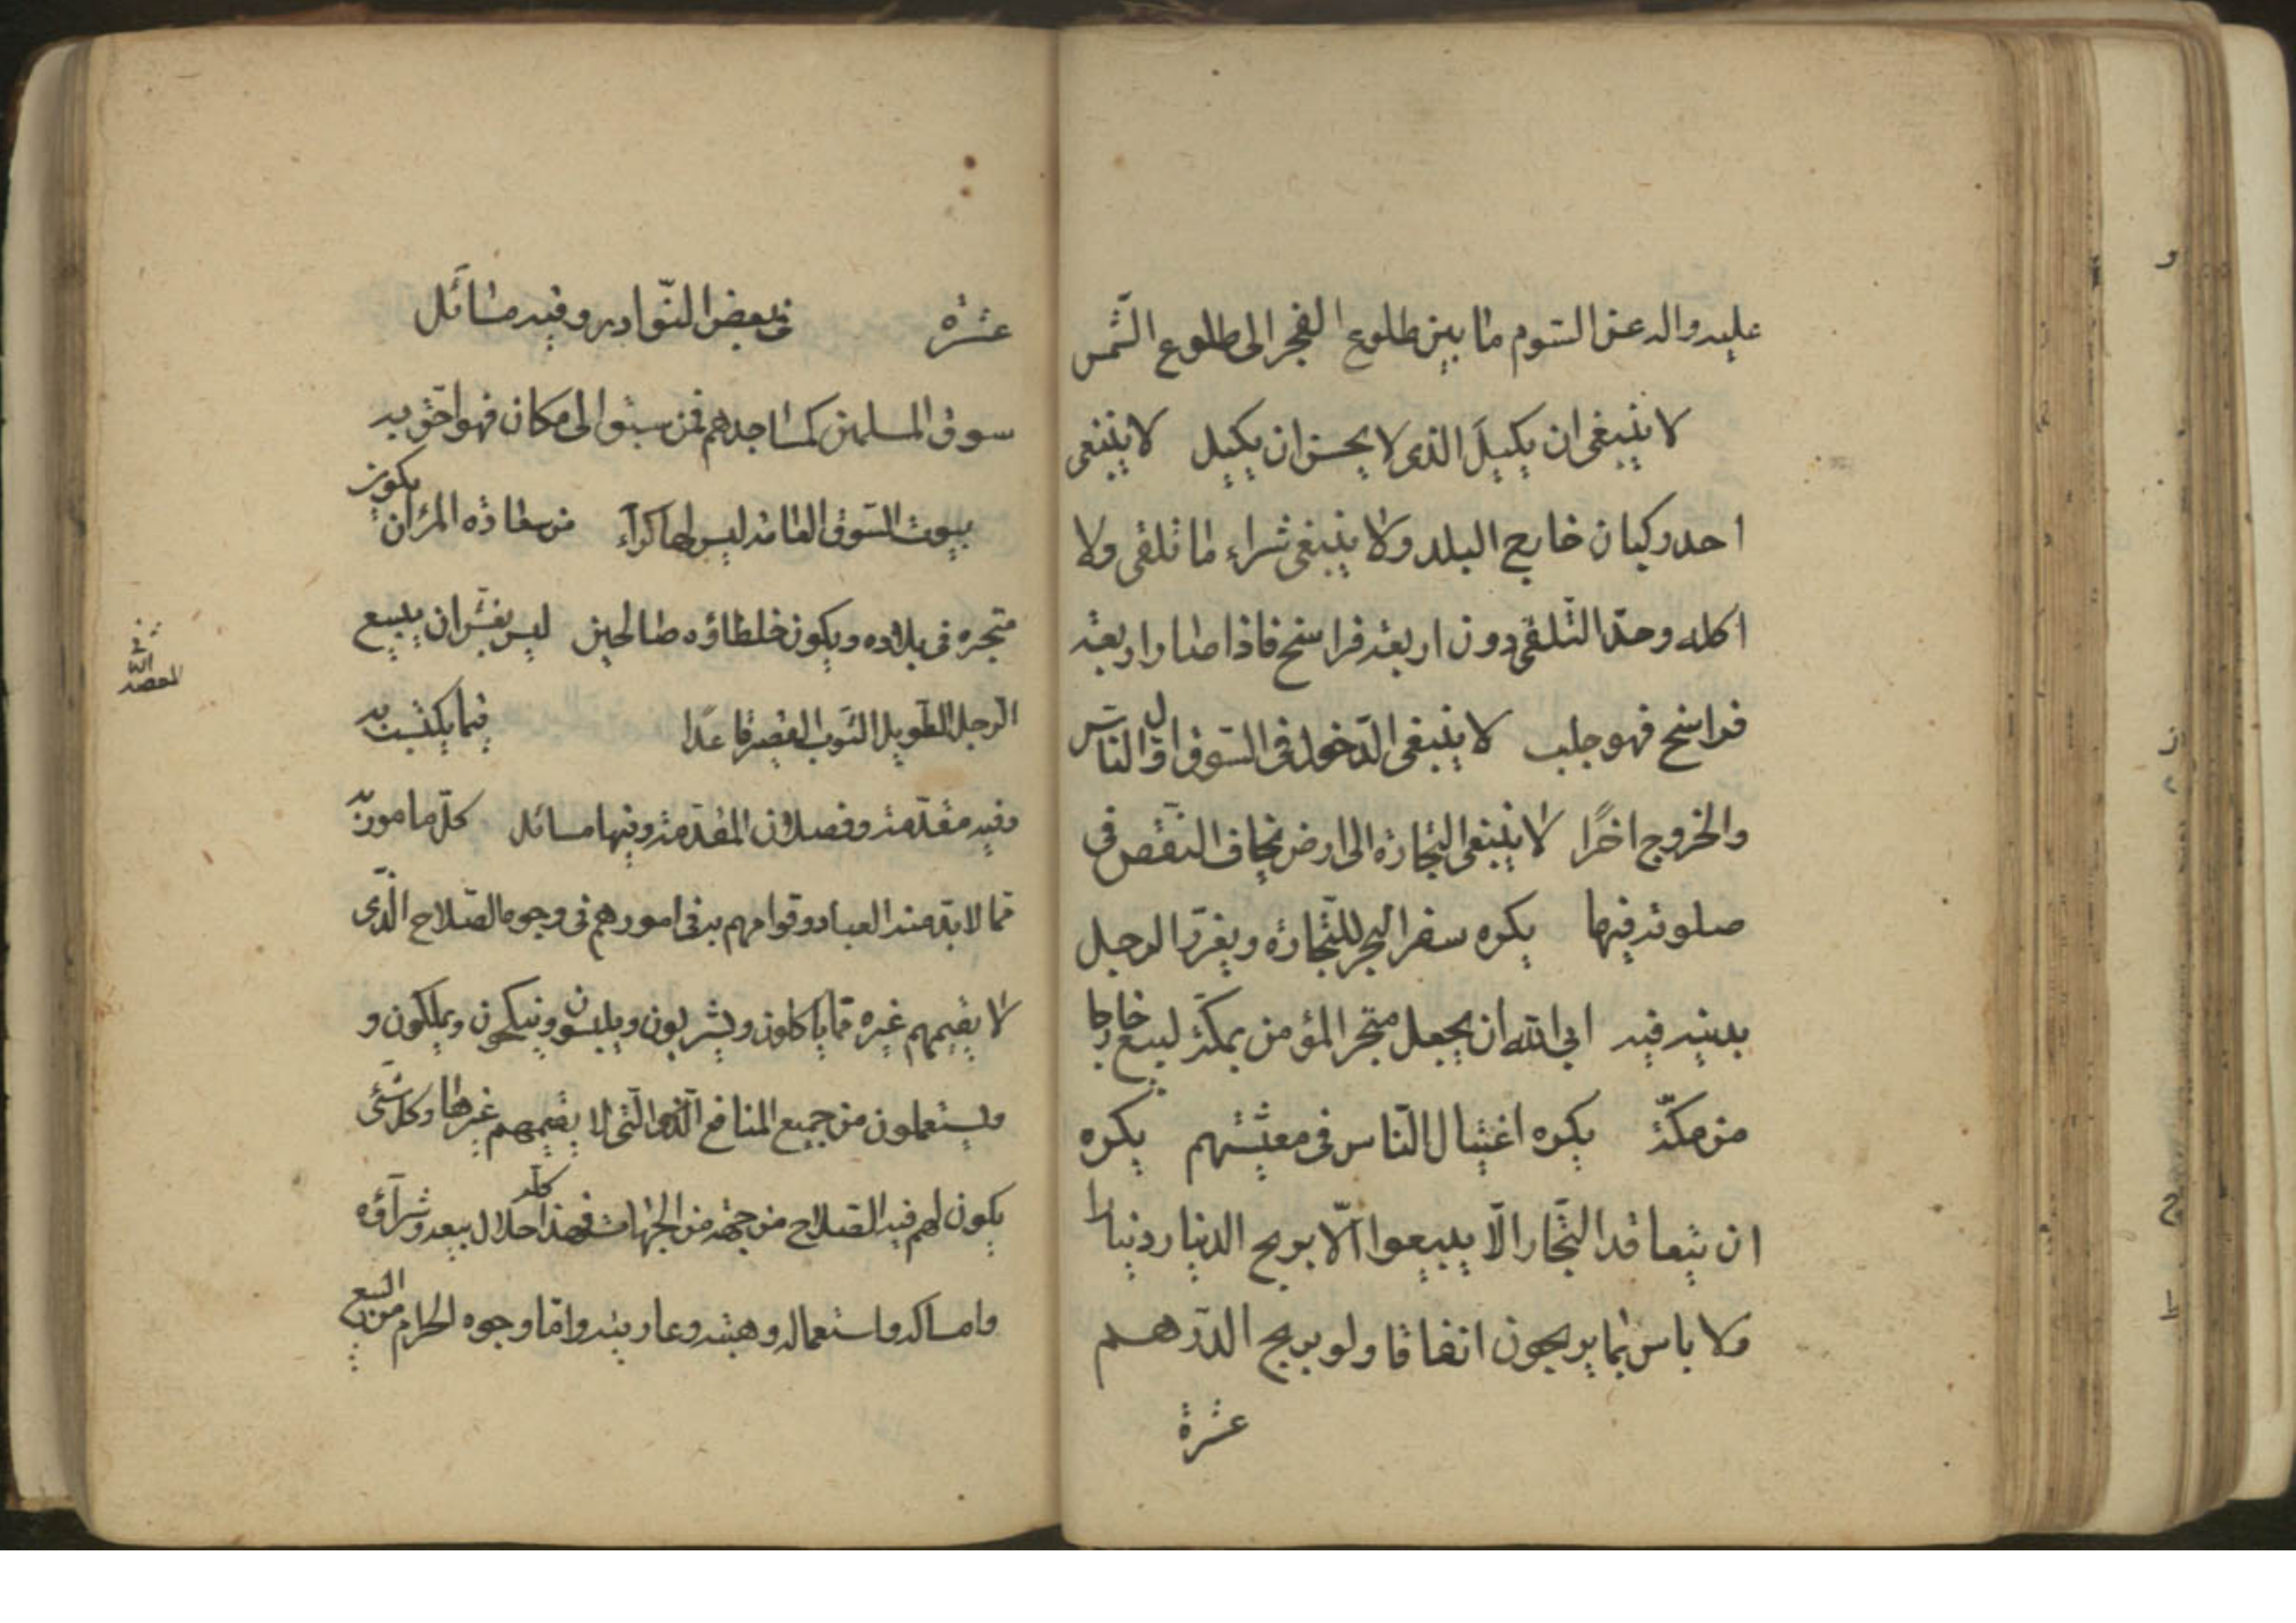 عليه واله عن السّوم ما بين طلوع الفجر الى طلوع الشّمس
لا ينبغى ان يكيل الذى لا يحسن ان يكيل لا ينبغى
احد ركبان خارج البلد ولا ينبغى شراء ما تلقى ولا
اكله وحدّ التّلقى دون اربعة فراسخ فاذا صار اربعة
فراسخ فهو جلب لا ينبغى الدّخول فى السّوق اوّل النّاس
والخروج اخرًا لا ينبغى التجارة الى ارض يخاف النّقص فى
صلوته فيها يكره سفر البحر للتّجارة ويغرّر الرجل
بدينه فيه ابى الله ان يجعل متجر المؤمن بمكّة ليبيع خارجا
من مكّة يكره اغتيال النّاس فى معيشتهم يكره
ان يتعاقد التّجار الّا يبيعوا الّا بربح الدينار دينارا
ولا باس بما يربحون اتفاقا ولو بربح الدّرهم
عشرة
عشرة فى بعض النّوادر وفيه مسائل
سوق المسلمين كمساجدهم فمن سبق الى مكان فهو احق به
بيوت السّوق العامة ليس لها كرآء من سعادة المرء ان يكون
متجره فى بلاده ويكون خلطاؤه صالحين ليس بغشّ ان يبيع
الرجل الطّويل الثّوب القصير قاعدًا فيما يكتسب به
وفيه مقدّمة وفصلان المقدّمة وفيها مسائل كلّ مامور به
ممّا لابدّ منه العباد وقوامهم به فى امورهم فى وجوه الصّلاح الّذى
لا يقيمهم غيره ممّا ياكلون ويشربون ويلبسون وينكحون ويملكون و
يستعملون من جميع المنافع الّتى لا يقيمهم غيرها وكلّ شئ
يكون لهم فيه الصّلاح من جهة من الجهات فهذا كلّه حلال بيعه وشرآؤه
وامساكه واستعماله وهبته وعاريته وامّا وجوه الحرام من البيع
المقصد